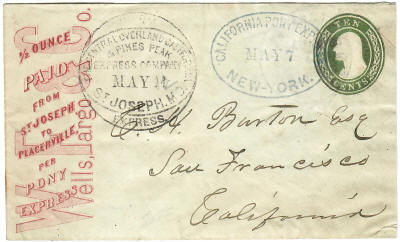 ½ OUNCE
PAID
FROM
ST JOSEPH
TO
PLACERVILLE,
PER
PONY
EXPRESS
Wells, Fargo & Co.
CENTRAL OVERLAND CALIFORNIA
& PIKES PEAK
EXPRESS COMPANY
MAY 14
ST. JOSEPH, MO.
EXPRESS
CALIFORNIA PONY EXPRESS
MAY 7
NEW-YORK.
TEN
CENTS
Burton Esq
San Francisco
California